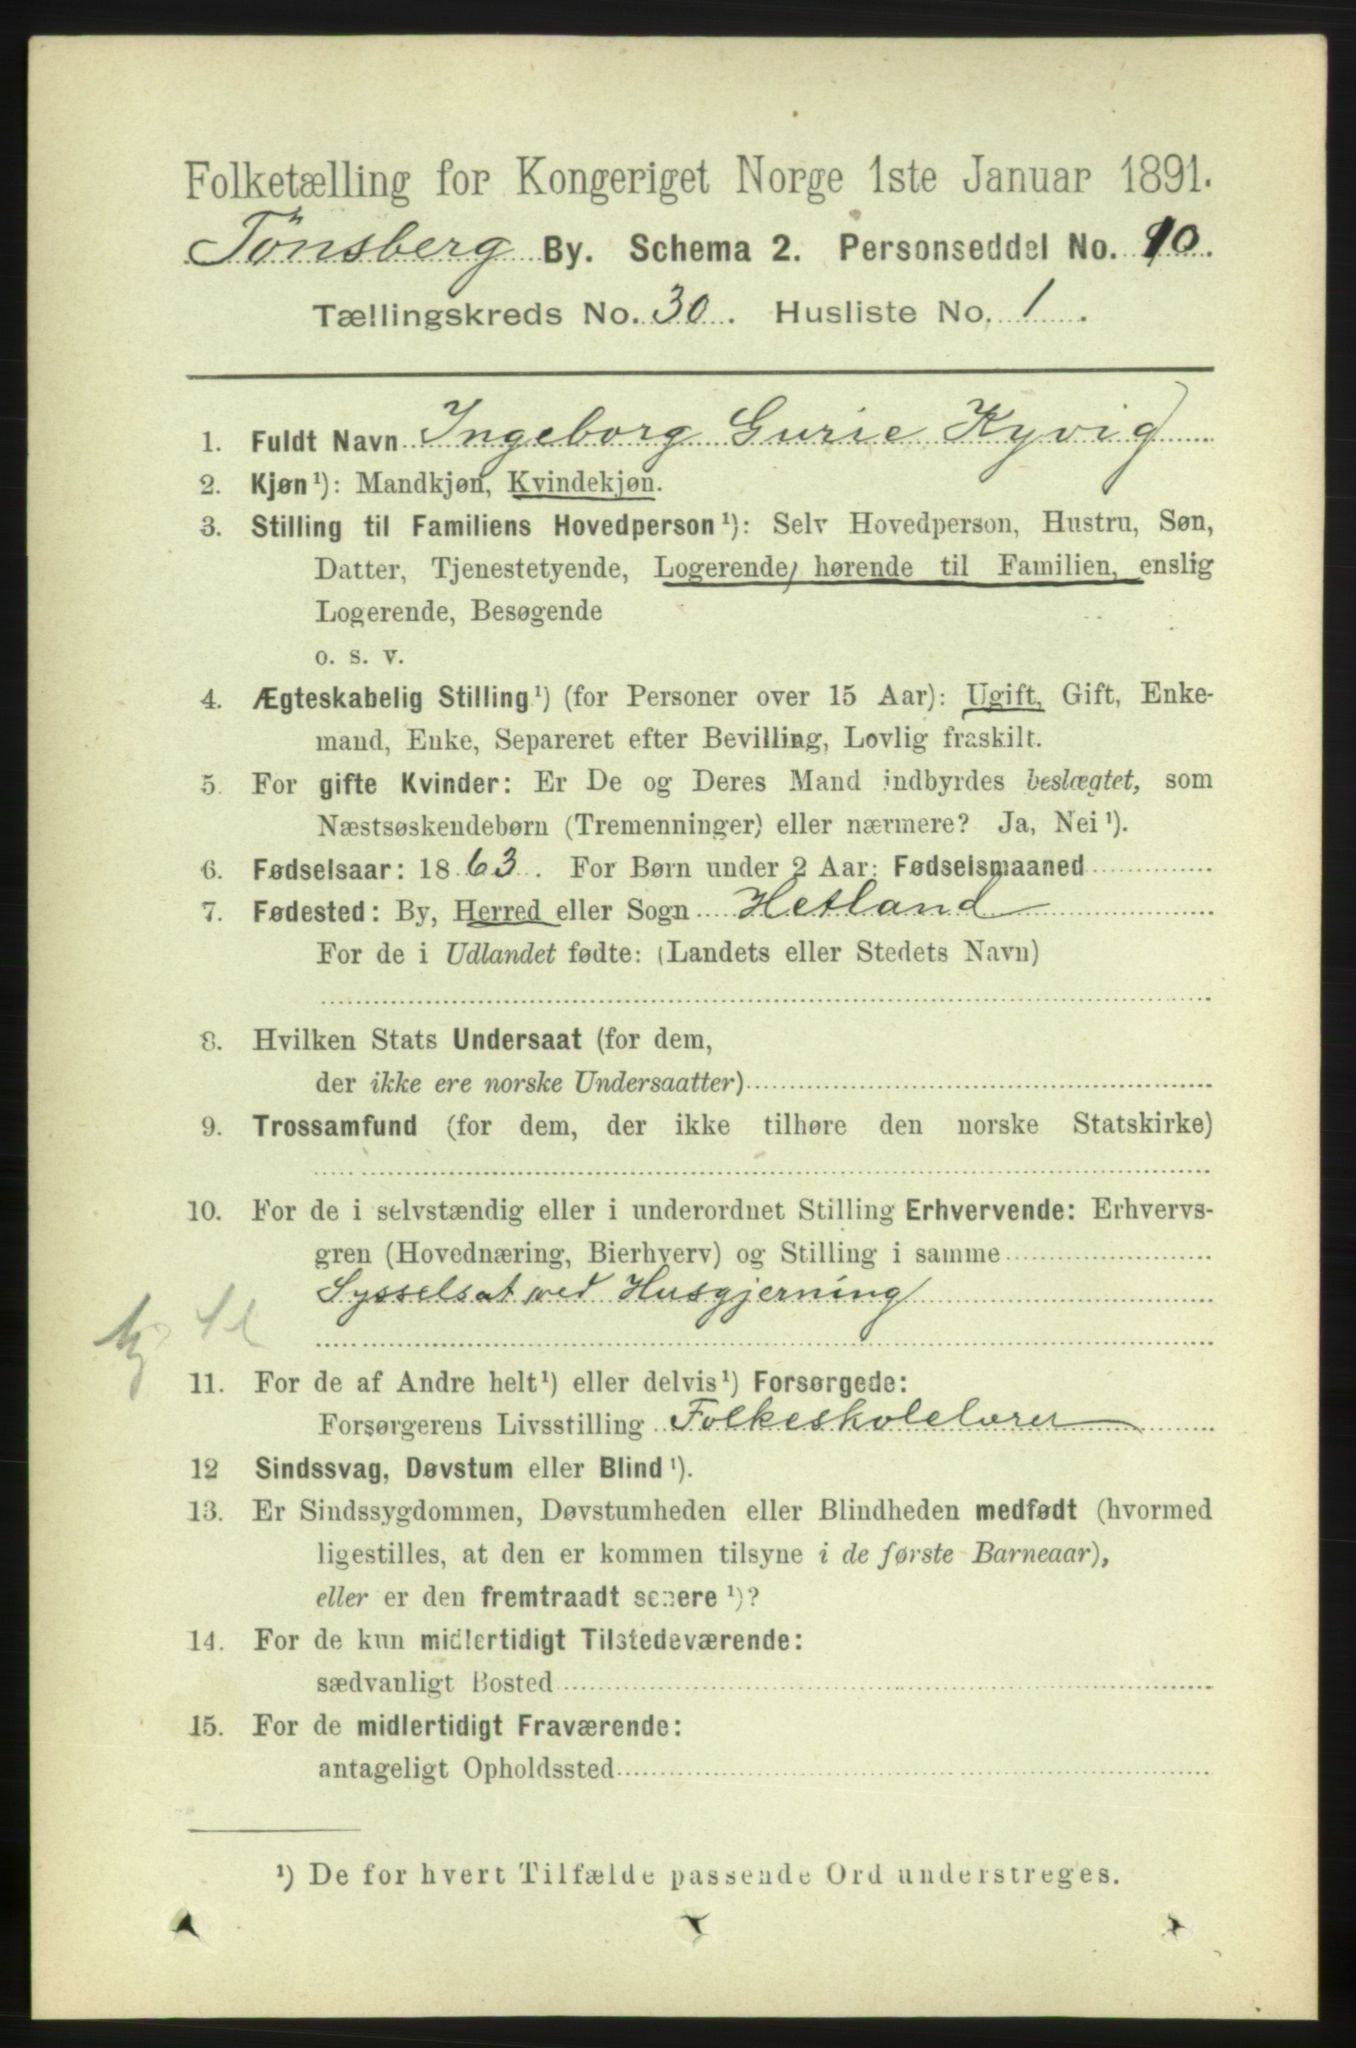 Folketælling for Kongeriget Norge 1ste Januar 1891.
Tönsberg By. Schema 2. Personseddel No. 10.
Tællingskreds No. 30. Husliste No. 1.
1. Fuldt Navn Ingeborg Gurie Kyvig
2. Kjøn¹): Mandkjøn, Kvindekjøn.
3. Stilling til Familiens Hovedperson¹): Selv Hovedperson, Hustru, Søn,
Datter, Tjenestetyende, Logerende, hørende til Familien, enslig
Logerende, Besøgende
o. s. v.
4. Ægteskabelig Stilling¹) (for Personer over 15 Aar): Ugift, Gift, Enke-
mand, Enke, Separeret efter Bevilling, Lovlig fraskilt.
5. For gifte Kvinder: Er De og Deres Mand indbyrdes beslægtet, som
Næstsøskendebørn (Tremenninger) eller nærmere? Ja, Nei¹).
6. Fødselsaar: 1863. For Børn under 2 Aar: Fødselsmaaned
7. Fødested: By, Herred eller Sogn Hetland
For de i Udlandet fødte: (Landets eller Stedets Navn)
8. Hvilken Stats Undersaat (for dem,
der ikke ere norske Undersaatter)
9. Trossamfund (for dem, der ikke tilhøre den norske Statskirke)
10. For de i selvstændig eller i underordnet Stilling Erhvervende: Erhvervs-
gren (Hovednæring, Bierhverv) og Stilling i samme
Sysselsat ved Husgjerning
11. For de af Andre helt¹) eller delvis¹) Forsørgede:
Forsørgerens Livsstilling Folkeskolelærer
12 Sindssvag, Døvstum eller Blind¹).
13. Er Sindssygdommen, Døvstumheden eller Blindheden medfødt (hvormed
ligestilles, at den er kommen tilsyne i de første Barneaar),
eller er den fremtraadt senere¹)?
14. For de kun midlertidigt Tilstedeværende:
sædvanligt Bosted
15. For de midlertidigt Fraværende:
antageligt Opholdssted
¹) De for hvert Tilfælde passende Ord understreges.